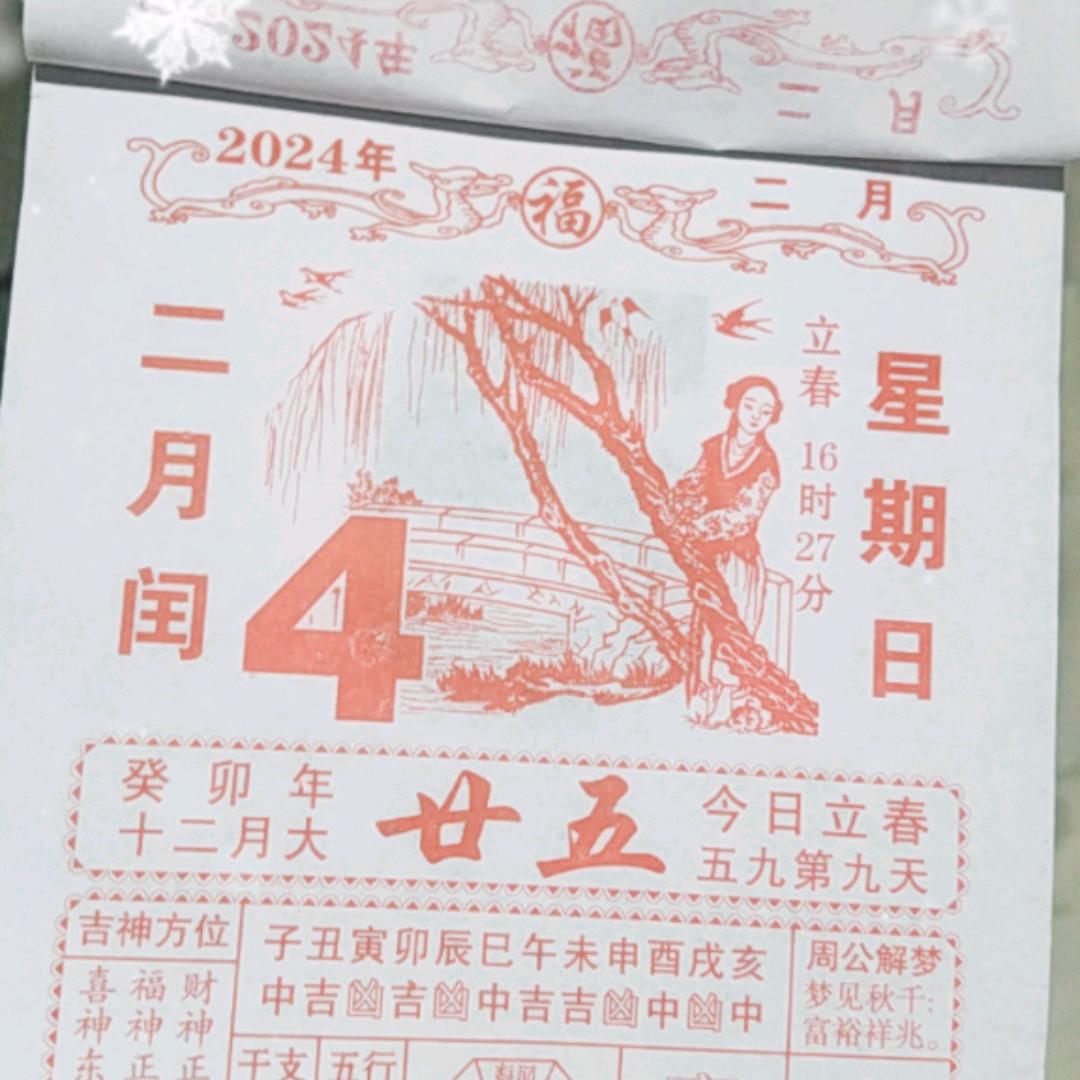 2024年
二 月
2024年
福
二 月
二月闰
4
立春 16时27分
星期日
癸卯年
十二月大
廿五
今日立春
五九第九天
吉神方位
喜神东
福神正
财神正
子丑寅卯辰巳午未申酉戌亥
中吉凶吉凶中吉吉凶中凶中
周公解梦
梦见秋千:
富裕祥兆。
干支
五行